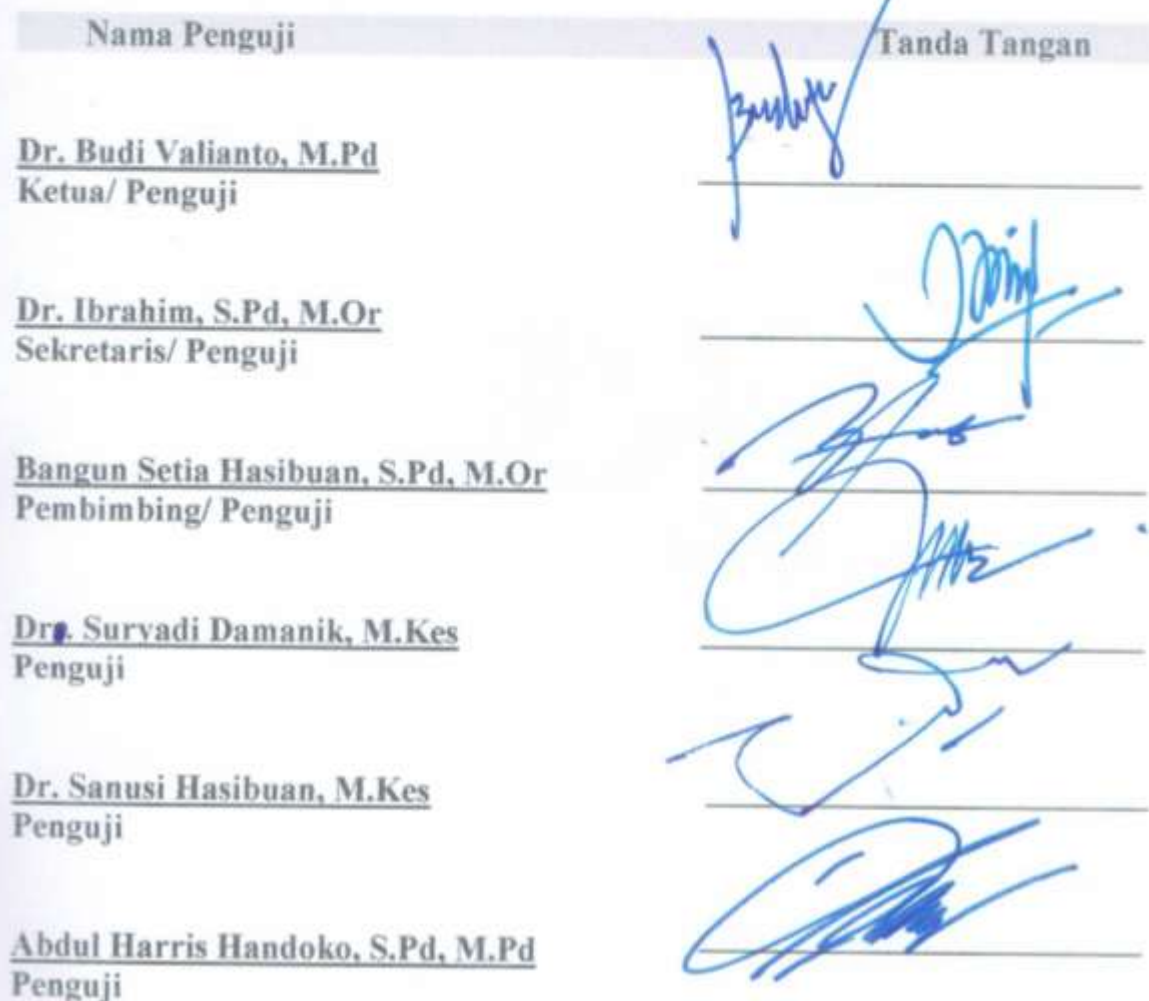 Nama Penguji Tanda Tangan
Dr. Budi Valianto, M.Pd
Ketua/ Penguji
Dr. Ibrahim, S.Pd, M.Or
Sekretaris/ Penguji
Bangun Setia Hasibuan, S.Pd, M.Or
Pembimbing/ Penguji
Dr. Suryadi Damanik, M.Kes
Penguji
Dr. Sanusi Hasibuan, M.Kes
Penguji
Abdul Harris Handoko, S.Pd, M.Pd
Penguji